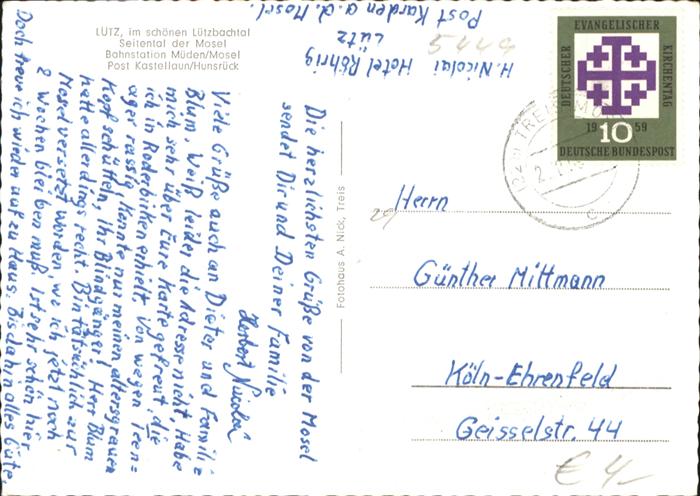 LÜTZ, im schönen Lützbachtal
Seitental der Mosel
Bahnstation Müden/Mosel
Post Kastellaun/Hunsrück
H. Nicolai Hotel Röhrig
Lütz
Post Karden a. d. Mosel.
5449
Die herzlichsten Grüße von der Mosel
sendet Dir und Deiner Familie
Herbert Nicolai
Viele Grüße auch an Dieter und Familie
Blum. Weiß leider die Adresse nicht. Habe
mich sehr über Eure Karte gefreut, die
ich in Roderbirken erhielt. Von wegen Tren=
ager rassig, konnte nur meinen altersgrauen
Kopf schütteln, Ihr Blindgänger! Herr Blum
hatte allerdings recht. Bin tatsächlich zur
Mosel versetzt worden, wo ich jetzt noch
2 Wochen bleiben muß. Ist sehr schön hier.
Doch freue ich wieder auf zu Haus. Bis dahin alles Gute.
Fotohaus A. Nick, Treis
DEUTSCHER EVANGELISCHER KIRCHENTAG
1959
10
DEUTSCHE BUNDESPOST
TREIS
c
Herrn
Günther Mittmann
Köln-Ehrenfeld
Geisselstr. 44
€ 4,-